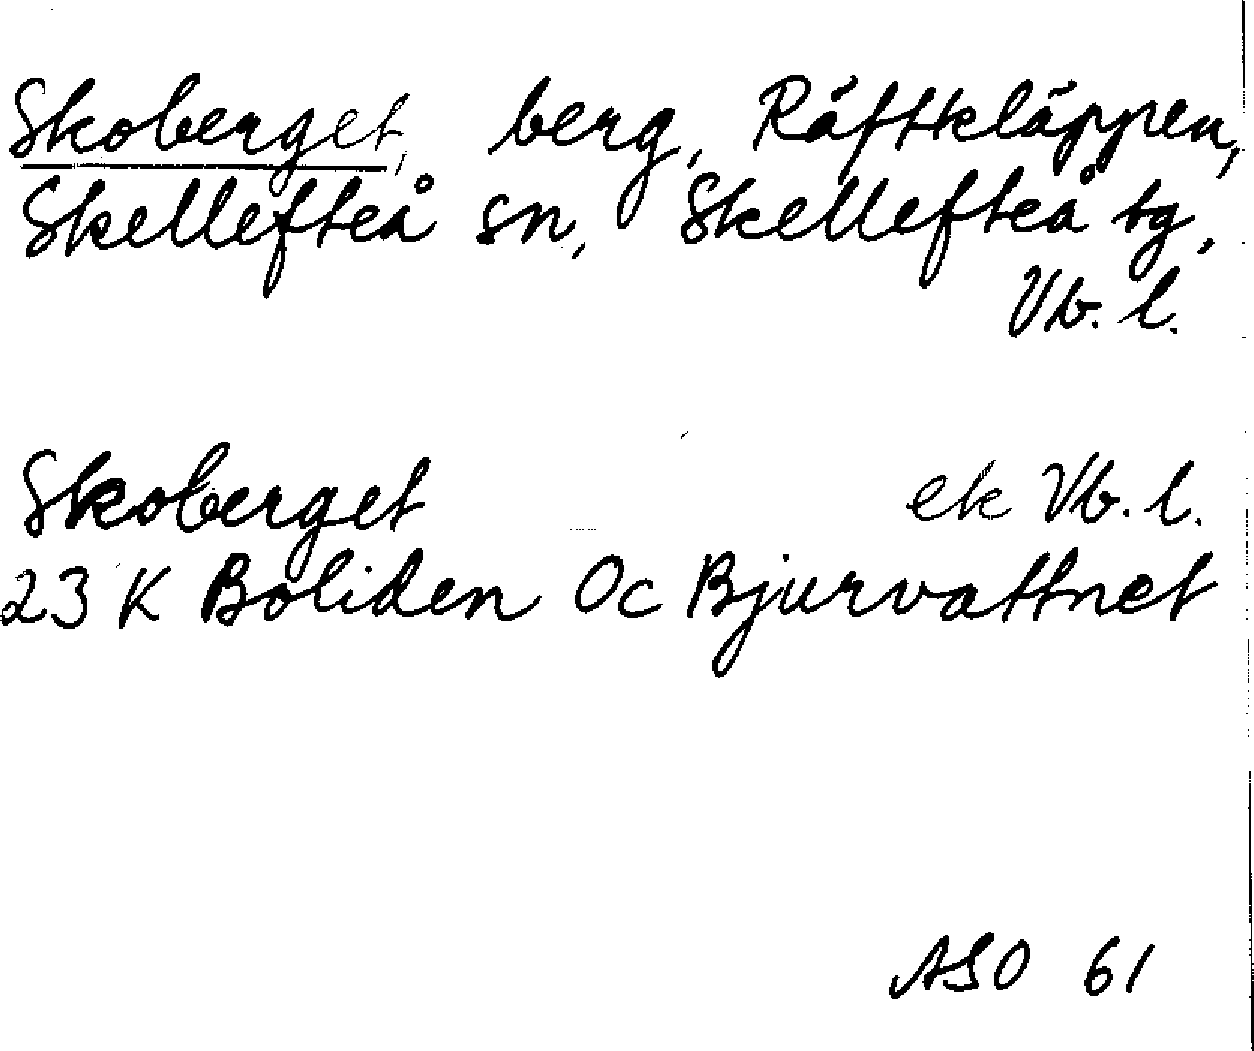 Skoberget, berg, Räftkläppen,
Skellefteå sn, Skellefteå tg,
Vb. l.
Skoberget ek Vb. l.
23 K Boliden Oc Bjurvattnet
ASO 61